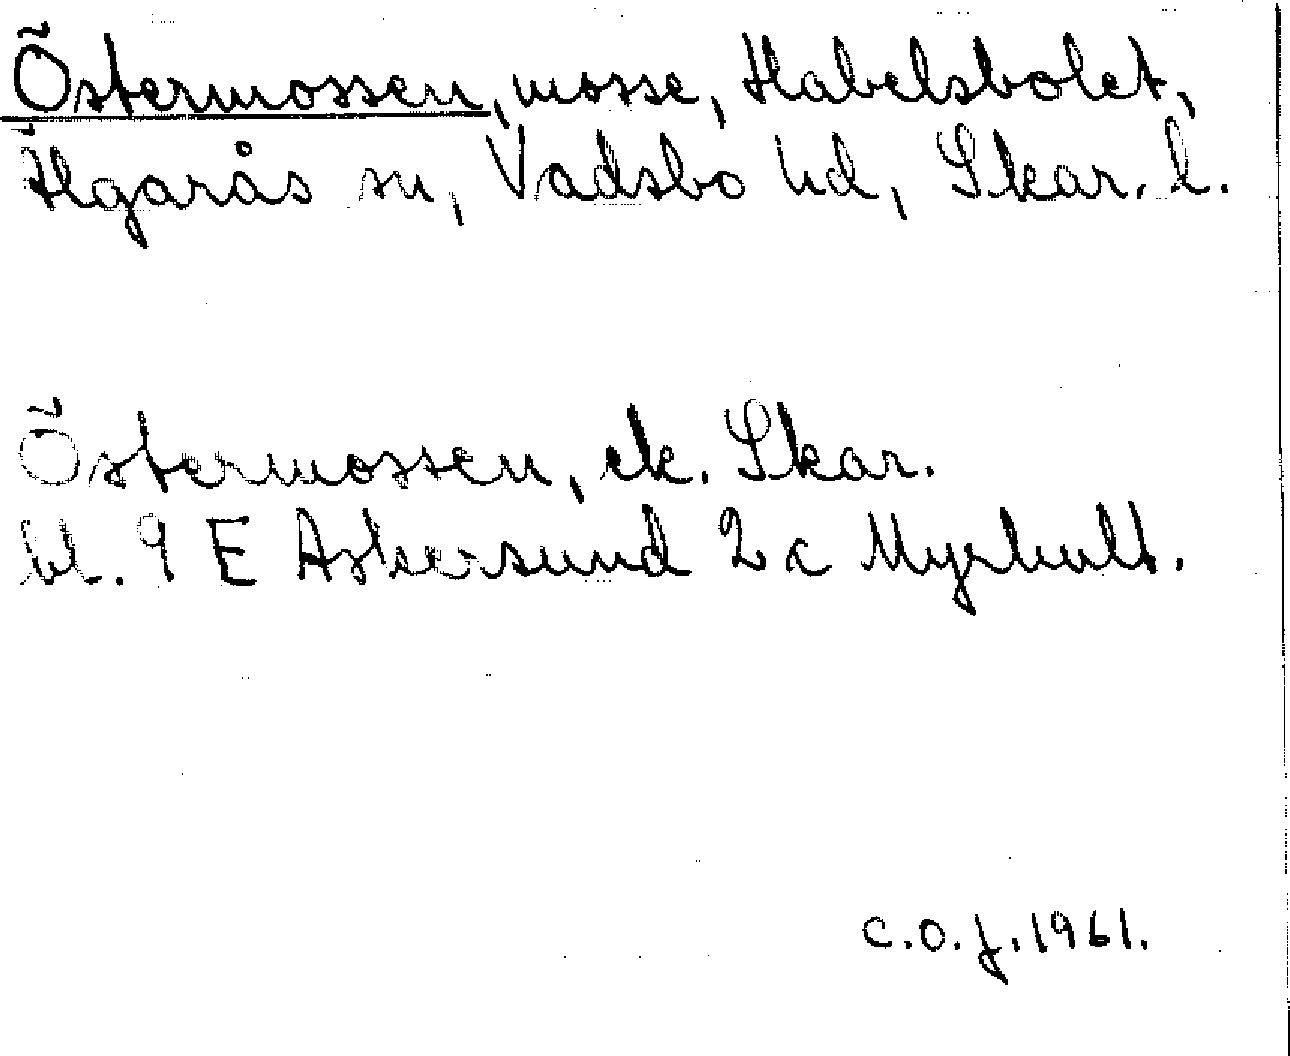 Östermossen, mosse, Habelsbolet,
Älgarås sn, Vadsbo hd, Skar. l.
Östermossen, ek. Skar.
bl. 9 E Askersund 2 c Myrhult.
C.O.J. 1961.